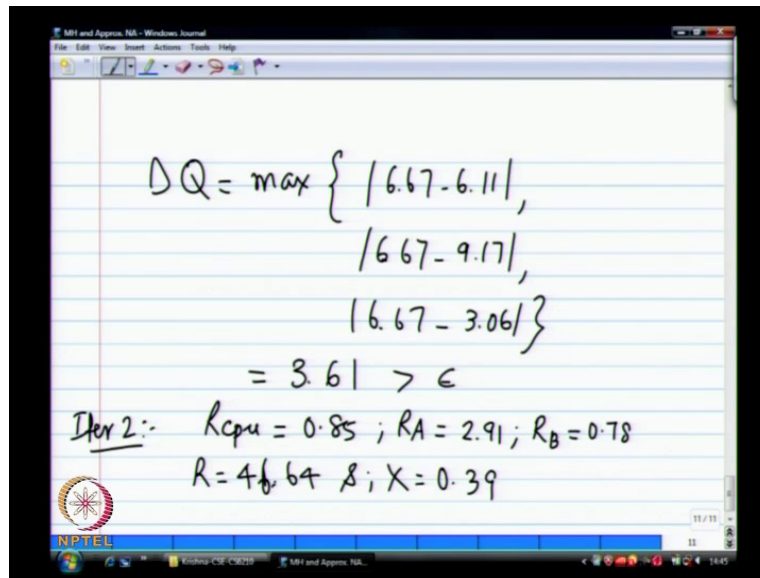 MH and Approx. NA - Windows Journal
File Edit View Insert Actions Tools Help
DQ = max { |6.67 - 6.11|,
|6.67 - 9.17|,
|6.67 - 3.06| }
= 3.61 > ϵ
Iter 2:- Rcpu = 0.85 ; RA = 2.91 ; RB = 0.78
R = 46.64 s ; X = 0.39
11 / 11
11
NPTEL
Krishna-CSE-CS6210 MH and Approx. NA... 14:45